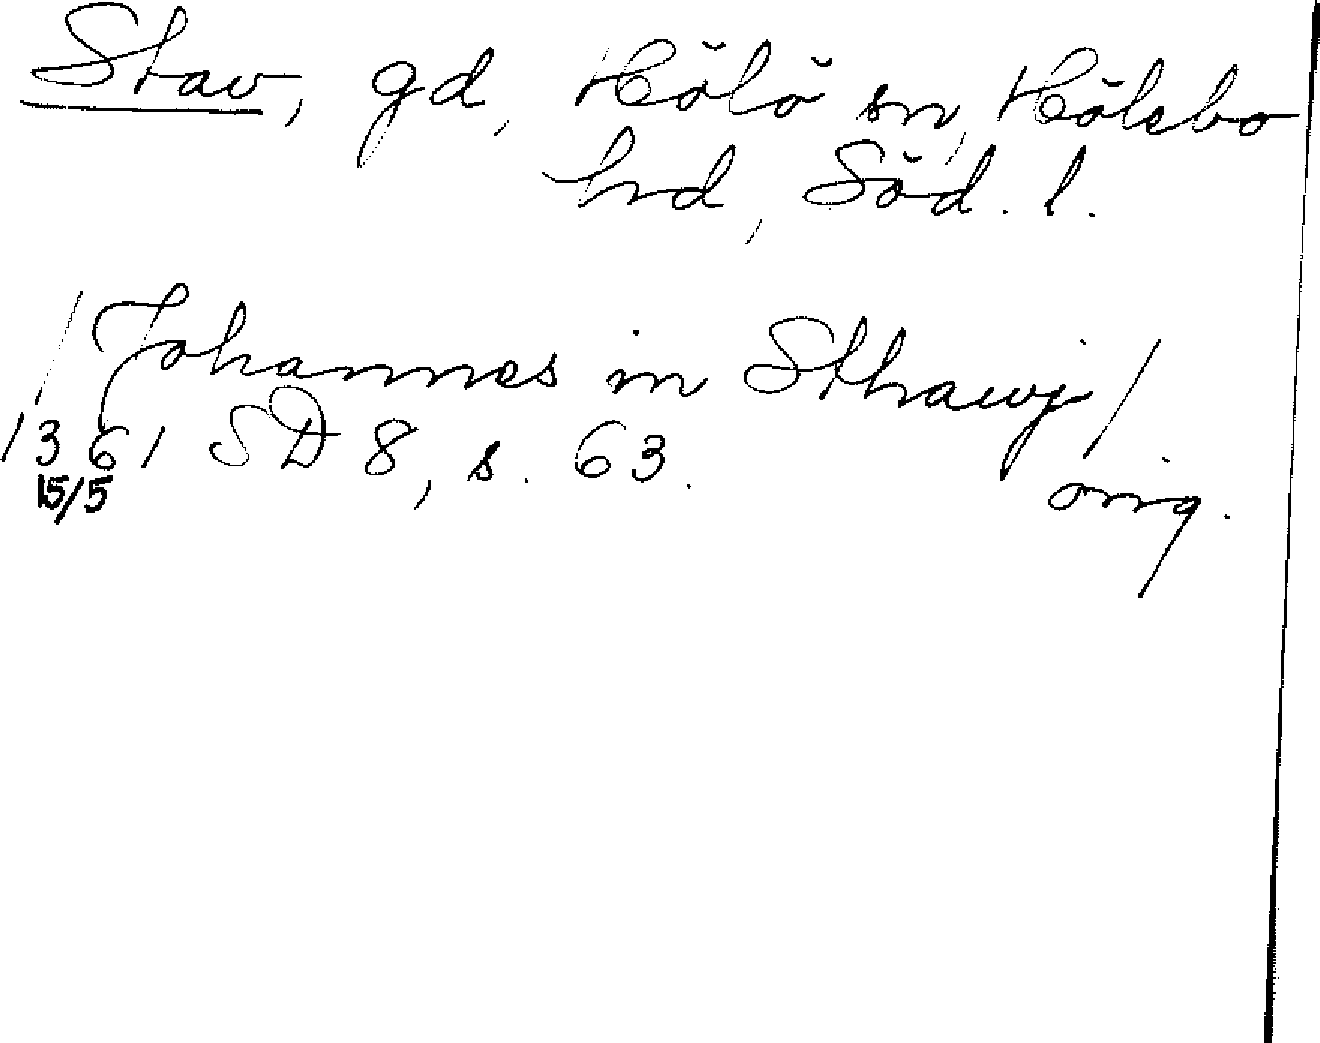 Stav, gd, Hölö sn, Hölebo
hd, Söd. l.
/Johannes in Sthawj/
1361 SD 8, s. 63.
15/5 orig.